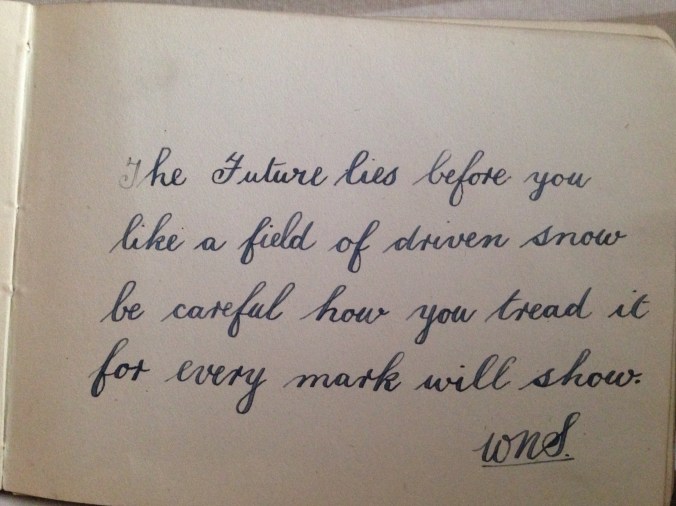 The Future lies before you
like a field of driven snow
be careful how you tread it
for every mark will show.
WNS.